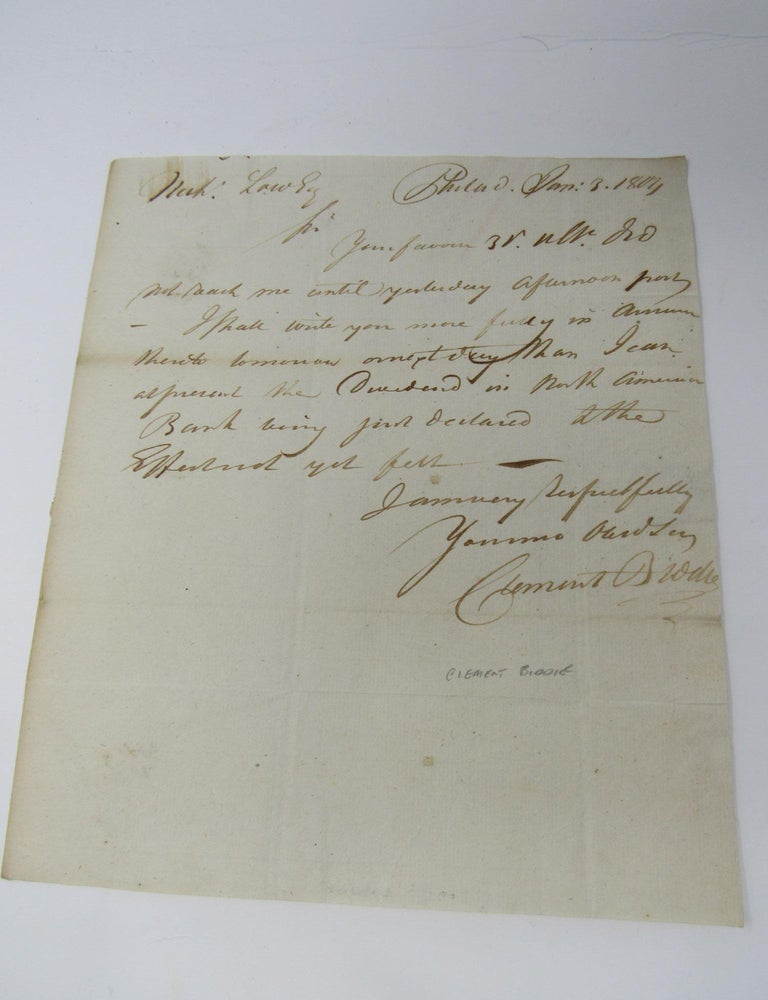 Nich. Low Esq Philad. Jan: 3. 1804
Sir
Your favour 31. ulto. did
not reach me until yesterday afternoon post
— I shall write you more fully in answer
thereto tomorrow or next day than I can
at present the Dividend in North America
Bank being just declared & the
Effect not yet felt —
I am very respectfully
Your mo Obed Ser
Clement Biddle
CLEMENT BIDDLE